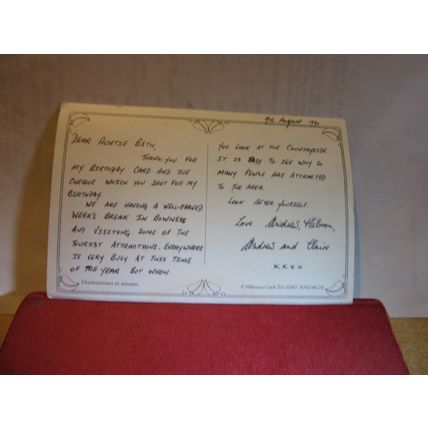 9th August
DEAR AUNTIE BETH,
THANK-YOU FOR
MY BIRTHDAY CARD AND THE
CHEQUE WHICH YOU SENT FOR MY
BIRTHDAY.
WE ARE HAVING A WELL-EARNED
WEEK'S BREAK IN BOWNESS
AND VISITING SOME OF THE
TOURIST ATTRACTIONS. EVERYWHERE
IS VERY BUSY AT THIS TIME
OF THE YEAR BUT WHEN
YOU LOOK AT THE COUNTRYSIDE
IT IS EASY TO SEE WHY SO
MANY PEOPLE ARE ATTRACTED
TO THE AREA.
LOOK AFTER YOURSELF
Love Andrew, Helen,
Andrew and Claire
x x x x
Derwentwater in autumn